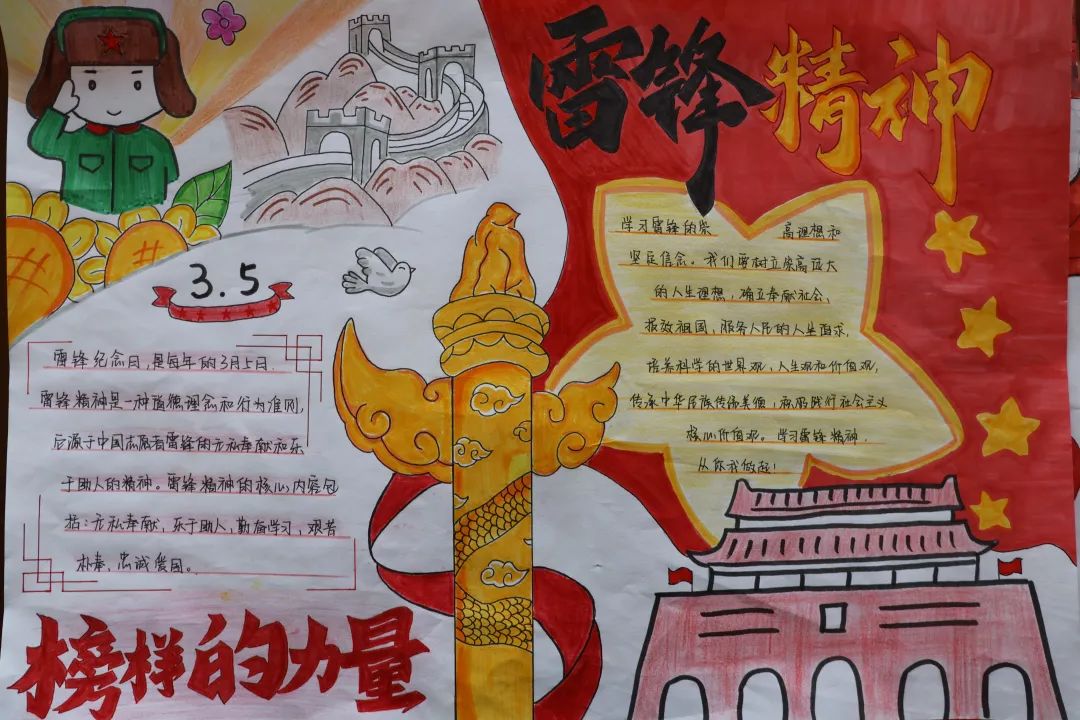 雷锋精神
3.5
雷锋纪念日，是每年的3月5日
雷锋精神是一种道德理念和行为准则，
后源于中国志愿者雷锋的无私奉献和乐
于助人的精神。雷锋精神的核心内容包
括：无私奉献，乐于助人，勤奋学习，艰苦
朴奉，忠诚爱国。
榜样的力量
学习雷锋的崇 高理想和
坚定信念。我们要树立崇高远大
的人生理想，确立奉献社会、
报效祖国，服务人民的人生追求，
培养科学的世界观，人生观和价值观，
传承中华民族传统美德，积极践行社会主义
核心价值观。学习雷锋精神，
从你我做起！